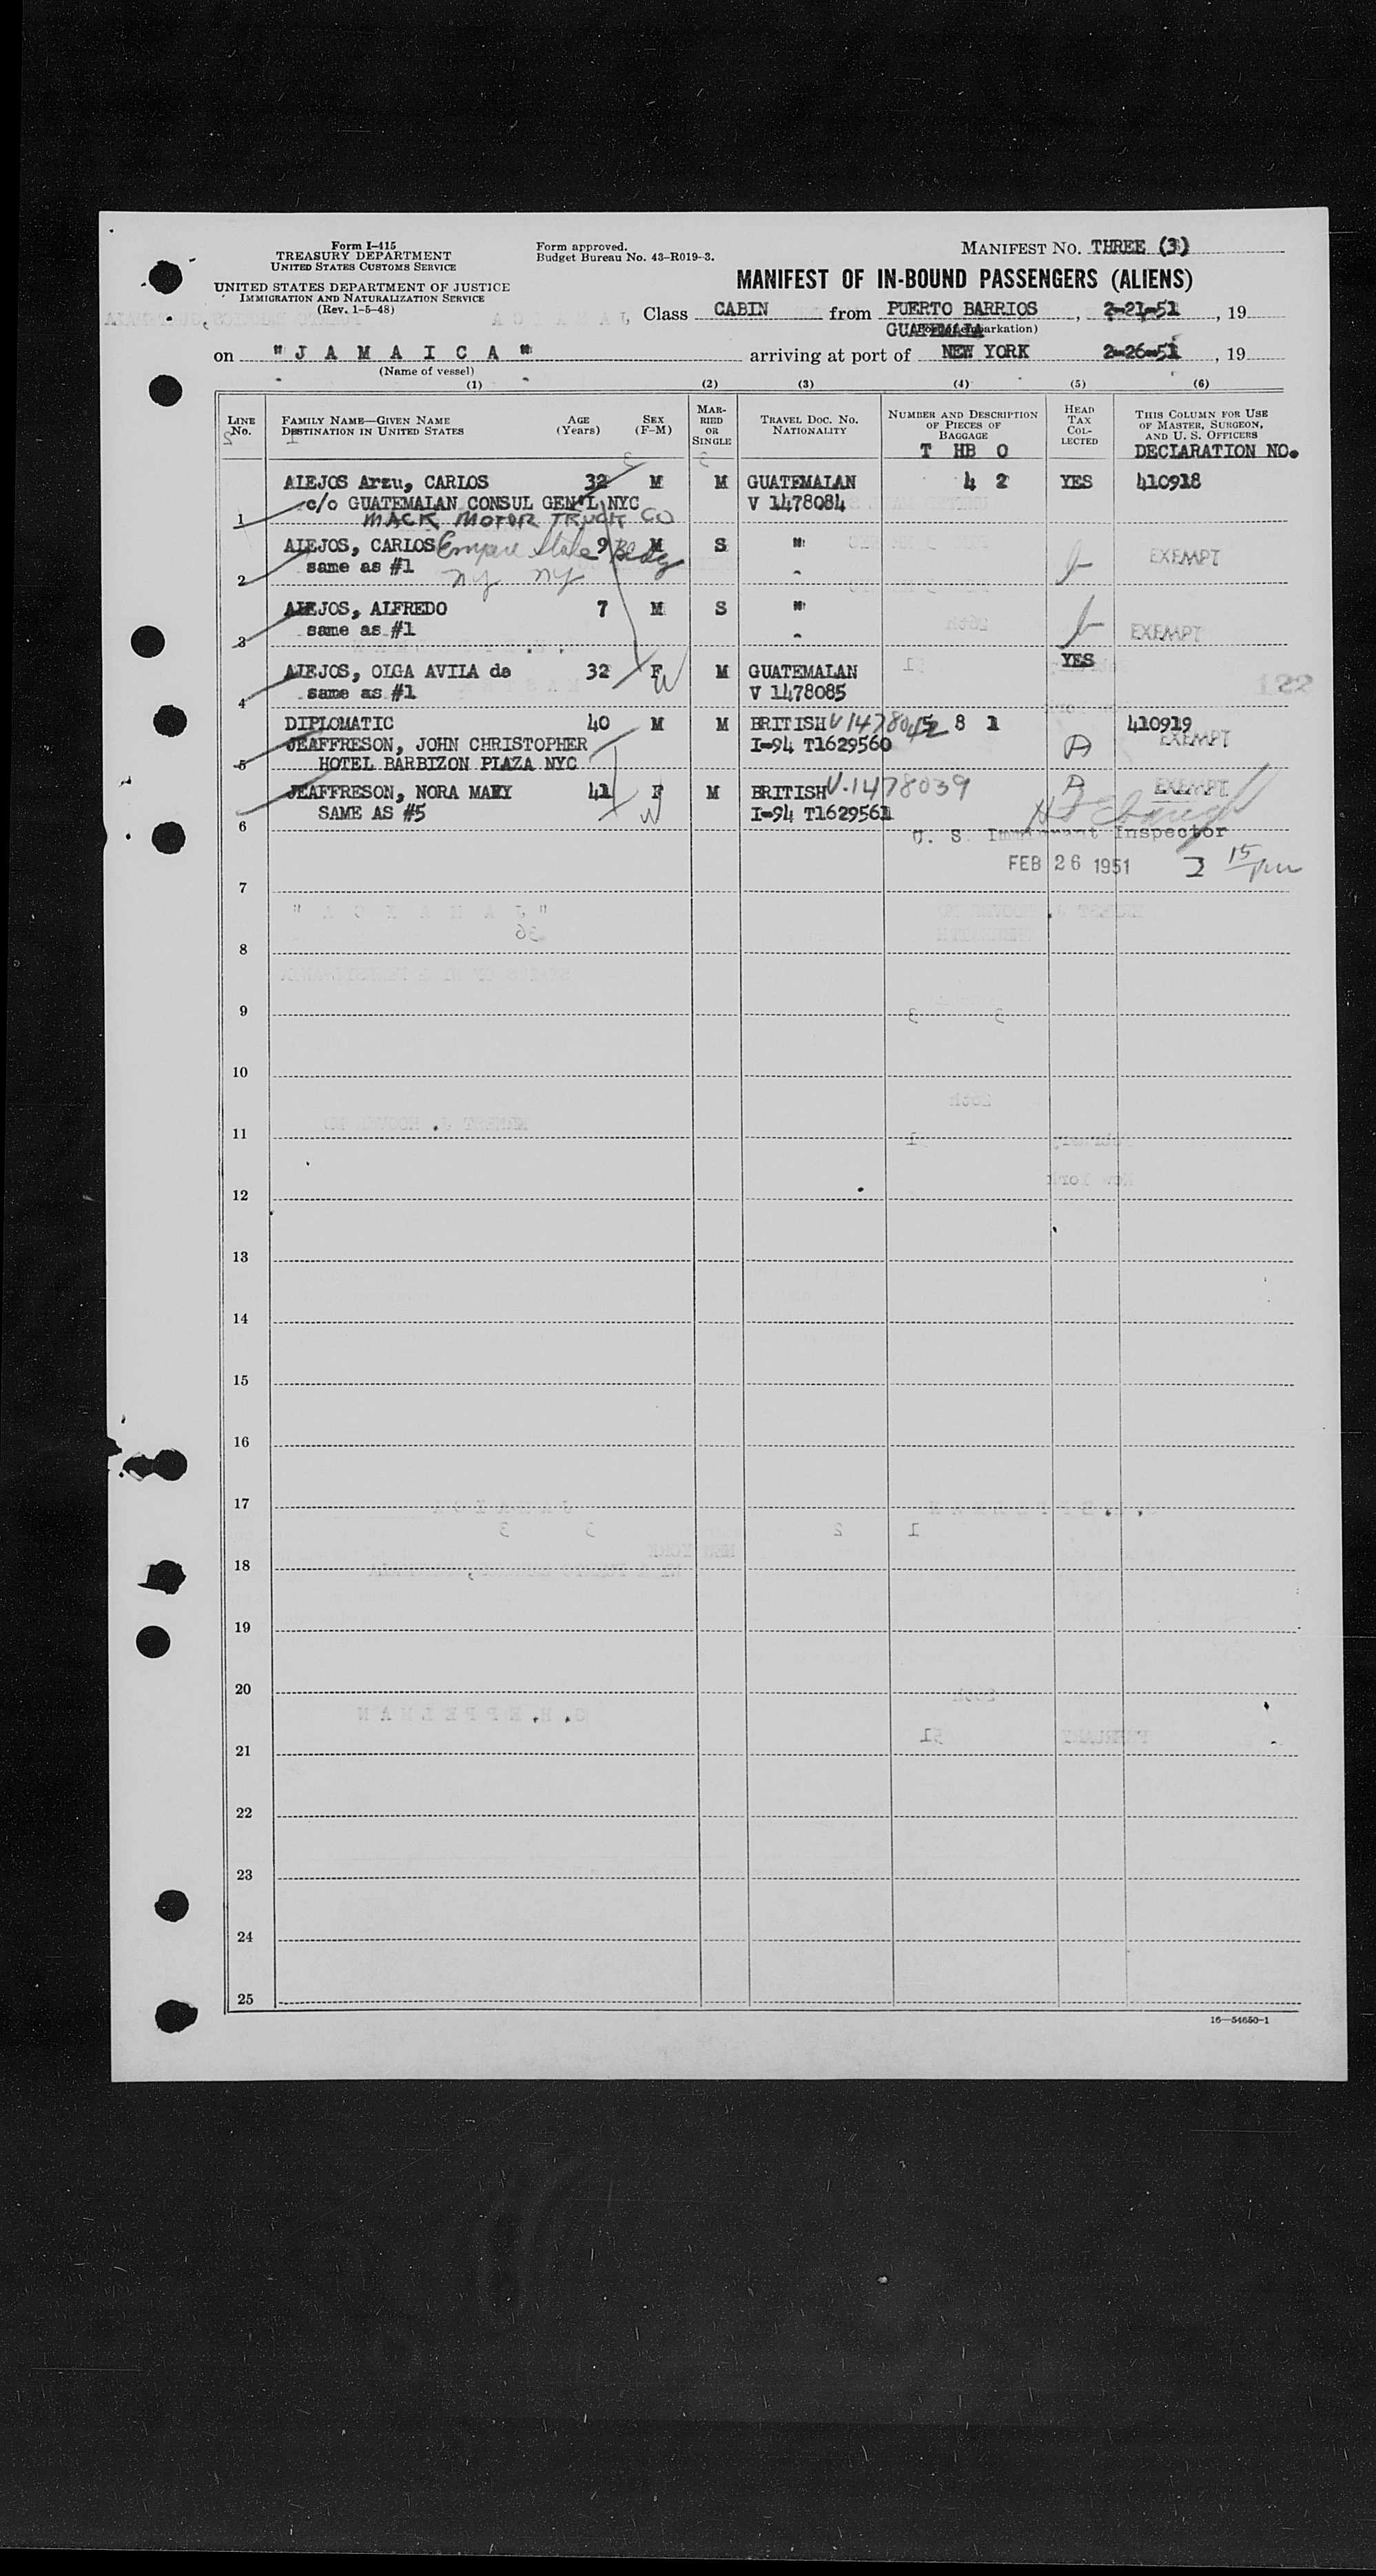 Form I-415
TREASURY DEPARTMENT
UNITED STATES CUSTOMS SERVICE
UNITED STATES DEPARTMENT OF JUSTICE
IMMIGRATION AND NATURALIZATION SERVICE
(Rev. 1-5-48)
Form approved.
Budget Bureau No. 43-R019-3.
MANIFEST No. THREE (3)
MANIFEST OF IN-BOUND PASSENGERS (ALIENS)
Class CABIN from PUERTO BARRIOS, 2-21-51, 19
GUATEMALA
on "J A M A I C A" arriving at port of NEW YORK 2-26-51, 19
(Name of vessel)
(1) (2) (3) (4) (5) (6)
LINE No. FAMILY NAME—GIVEN NAME DESTINATION IN UNITED STATES AGE (Years) SEX (F-M) MARRIED OR SINGLE TRAVEL DOC. NO. NATIONALITY NUMBER AND DESCRIPTION OF PIECES OF BAGGAGE HEAD TAX COLLECTED THIS COLUMN FOR USE OF MASTER, SURGEON, AND U. S. OFFICERS
T HB O DECLARATION NO.
ALEJOS Arzu, CARLOS 32 M M GUATEMALAN 4 2 YES 410918
c/o GUATEMALAN CONSUL GEN'L NYC V 1478084
1 MACK MOTOR TRUCK CO
ALEJOS, CARLOS Empire State 9 Bldg M S " EXEMPT
2 same as #1 NY NY "
ALEJOS, ALFREDO 7 M S "
3 same as #1 " EXEMPT
ALEJOS, OLGA AVILA de 32 F M GUATEMALAN YES
4 same as #1 W V 1478085
122
DIPLOMATIC 40 M M BRITISH 8 1 410919
5 JEAFFRESON, JOHN CHRISTOPHER I-94 T1629560 A EXEMPT
HOTEL BARBIZON PLAZA NYC
JEAFFRESON, NORA MARY 41 F M BRITISH V-1478039 A EXEMPT
6 SAME AS #5 W I-94 T1629561
U. S. Immigrant Inspector
FEB 26 1951 2 15 pm
7
8
9
10
11
12
13
14
15
16
17
18
19
20
21
22
23
24
25
16—54650-1